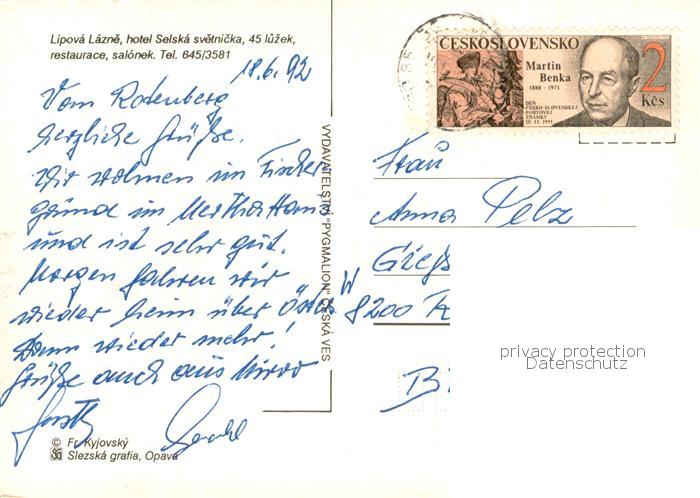 Lipová Lázně, hotel Selská světnička, 45 lůžek,
restaurace, salónek. Tel. 645/3581
18.6.92
Vom Rotenberg
herzliche Grüße.
Wir wohnen im Fischer
grund im Martha Haus
und ist sehr gut.
Morgen fahren wir
wieder heim über
Dann wieder mehr!
Grüße auch aus
© Fr. Kyjovský
Slezská grafia, Opava
VYDAVATELSTVÍ "PYGMALION" ČESKÁ VES
ČESKOSLOVENSKO
Martin
Benka
1888 - 1971
DEŇ
ČESKO-SLOVENSKEJ
POŠTOVEJ
ZNÁMKY
18. 12. 1991
2
Kčs
Frau
Anna Pelz
W 8200
privacy protection
Datenschutz